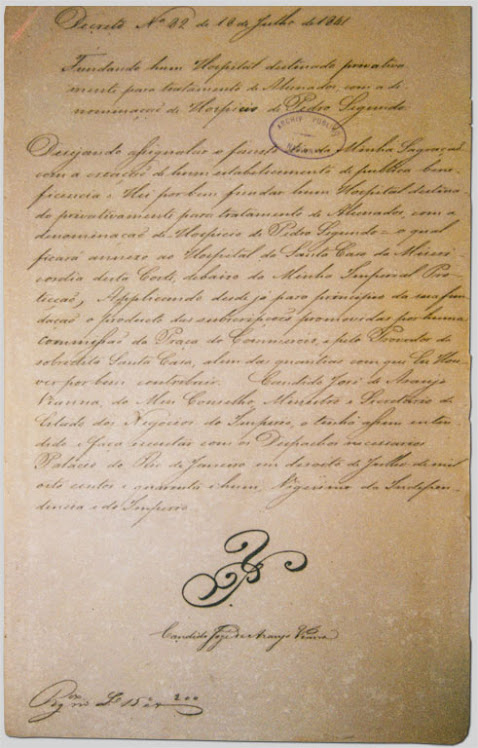 Decreto Nº 82 de 18 de Julho de 1841
Fundando hum Hospital destinado privativa
mente para tratamento de Alienados, com a de
nominação de Hospicio de Pedro Segundo
ARCHIVO PUBLICO
Desejando assignalar o fausto dia da Minha Sagração
com a creação de hum estabelecimento de publica bene-
ficencia: Hei por bem fundar hum Hospital destina-
do privativamente para tratamento de Alienados, com a
denominação de Hospicio de Pedro Segundo = o qual
ficará annexo ao Hospital da Santa Casa da Miseri-
cordia desta Corte, debaixo da Minha Imperial Pro-
tecção, Applicando desde já para principio da sua fun-
dação o producto das subscripções promovidas por huma
commissão da Praça do Commercio, e pelo Provedor da
sobredita Santa Casa, alem das quantias com que Eu Hou-
ver por bem contribuir. Candido José de Araujo
Vianna, do Meu Conselho, Ministro e Secretario de
Estado dos Negocios do Imperio, o tenha assim enten-
dido e faça executar com os Despachos necessarios
Palacio do Rio de Janeiro em desoito de Julho de mil
oito centos e quarenta e hum, Vigesimo da Indepen-
dencia e do Imperio
Candido José de Araujo Vianna